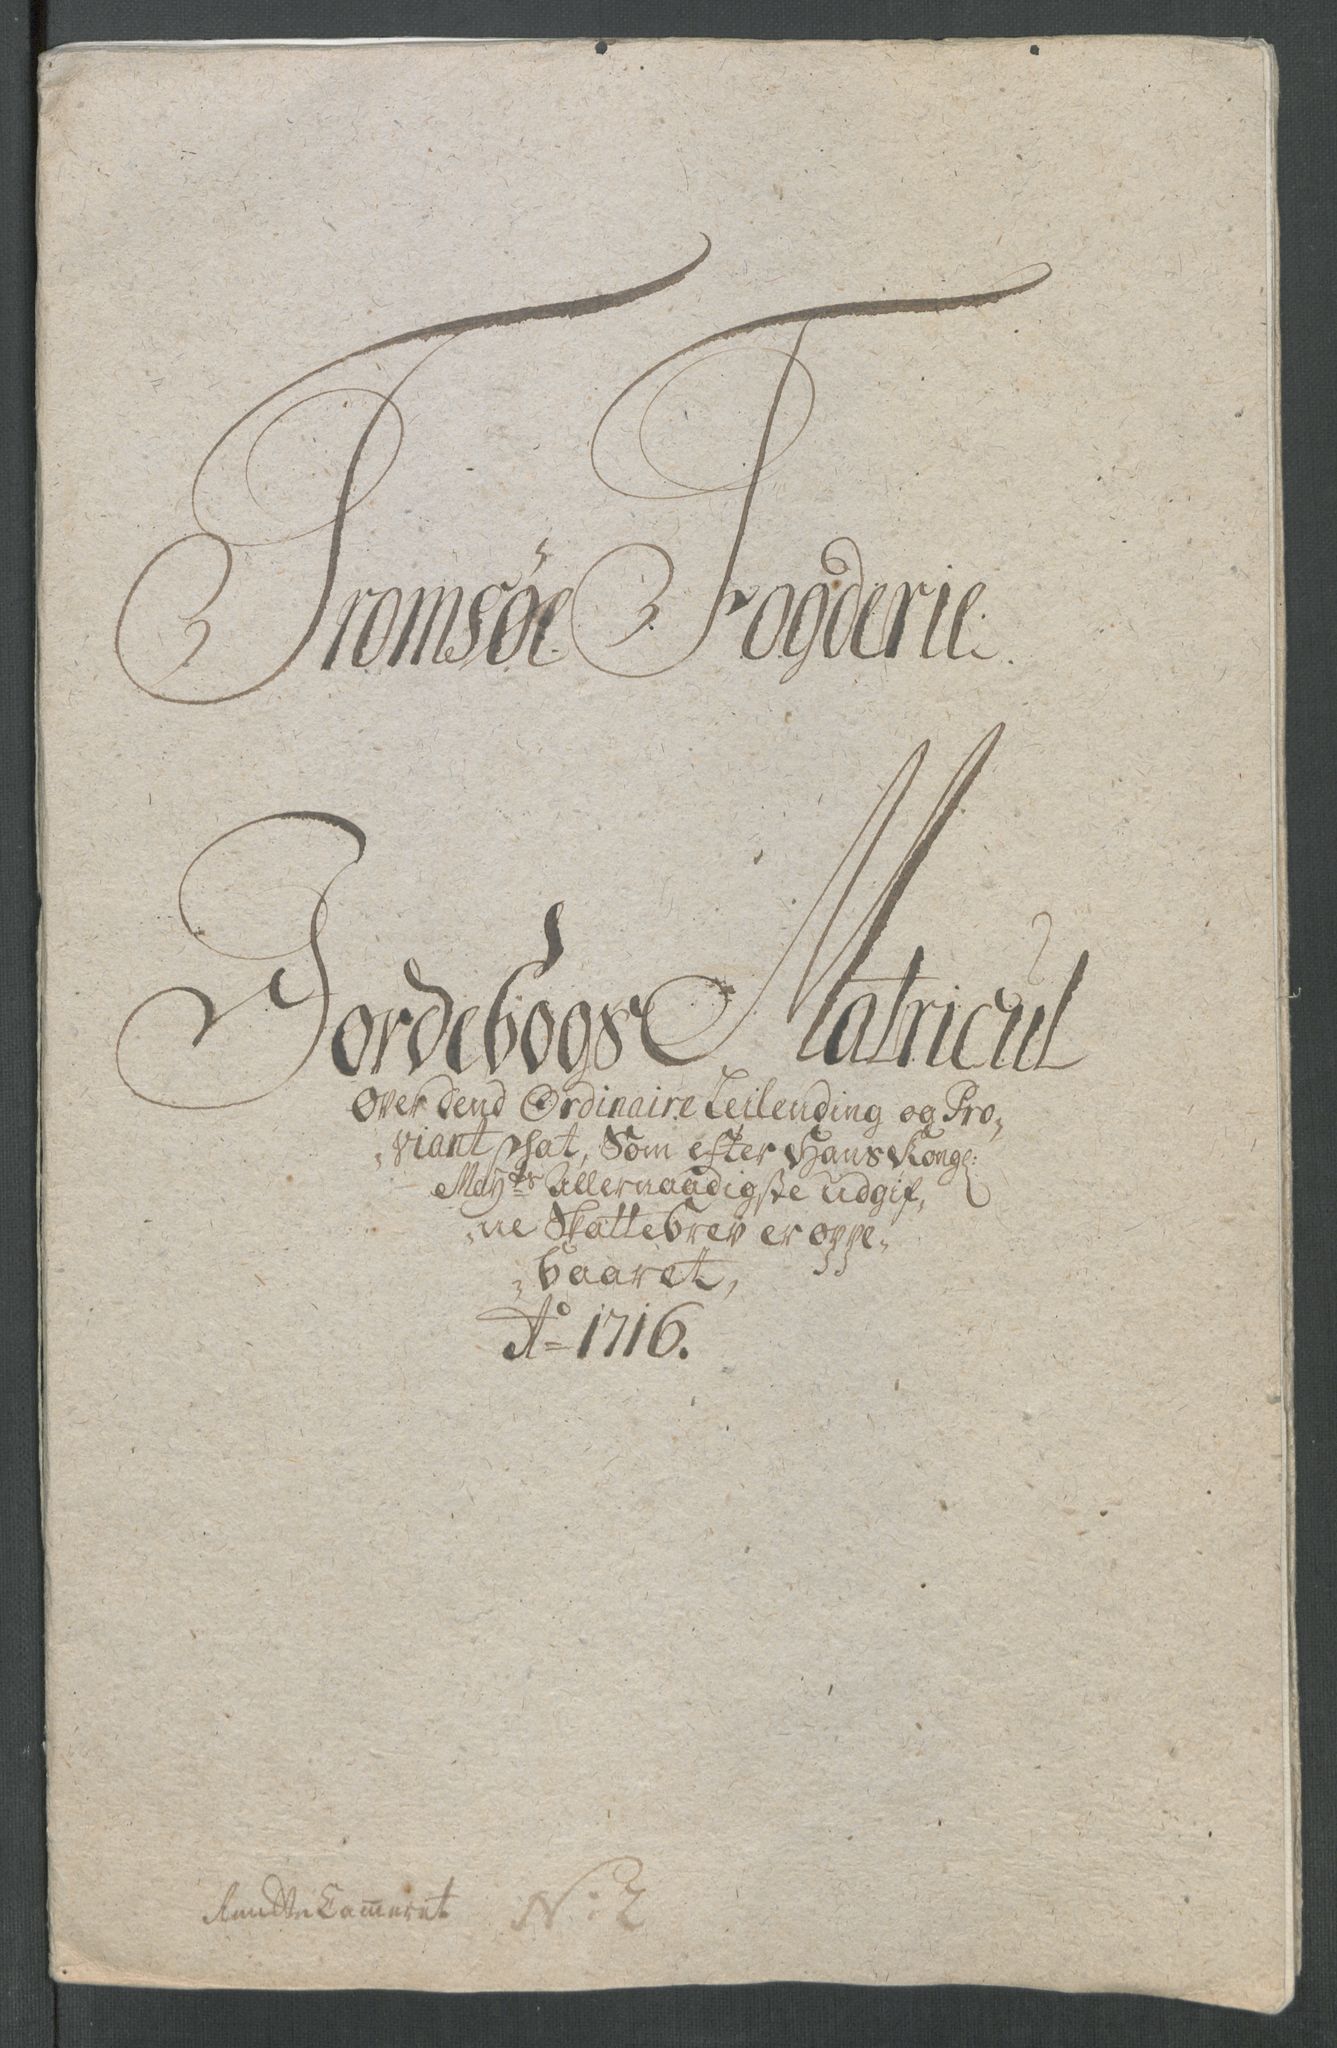 Tromsøe Fogderie.
Jordebogs Matricul
Over dend Ordinaire Leilending og Pro,,
,,viant Shat, Som efter Hans Kongl:
May:ts Allernaadigste udgif,,
,,ne Skattebrev er oppe,,
,,baaret,
Ao 1716.
RendteCammeret N: 2